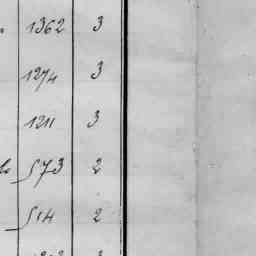 1362 3
1274 3
1211 3
573 2
514 2